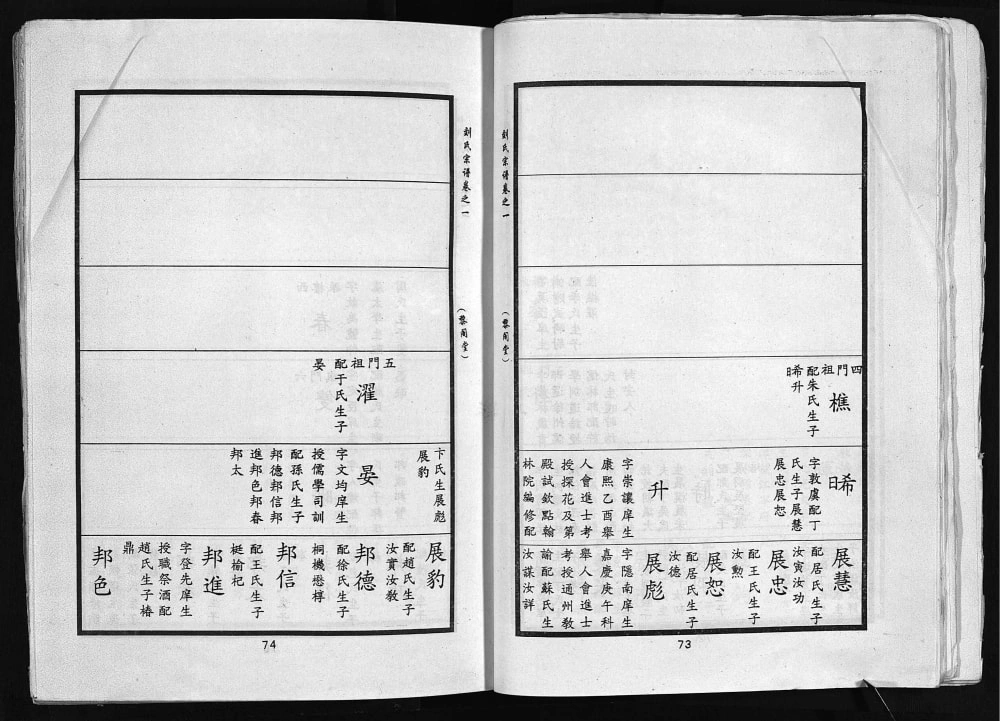 劉氏宗譜卷之一
(黎閣堂)
四門祖
樵
配朱氏生子
晞升
晞
字敦虞配丁
氏生子展慧
展忠展恕
升
字崇讓庠生
康熙乙酉舉
人會進士考
授探花及第
殿試欽點翰
林院編修配
展慧
配居氏生子
汝寅汝功
展忠
配王氏生子
汝勲
展恕
配居氏生子
汝德
展彪
字隱南庠生
嘉慶庚午科
舉人會進士
考授通州敎
諭配蘇氏生
汝謀汝詳
73
劉氏宗譜卷之一
(黎閣堂)
五門祖
濯
配于氏生子
晏
卞氏生展彪
展豹
晏
字文均庠生
授儒學司訓
配孫氏生子
邦德邦信邦
進邦色邦春
邦太
展豹
配趙氏生子
汝實汝敎
邦德
配徐氏生子
桐機懋椁
邦信
配王氏生子
梃榆杞
邦進
字登先庠生
授職祭酒配
趙氏生子椿
鼎
邦色
74